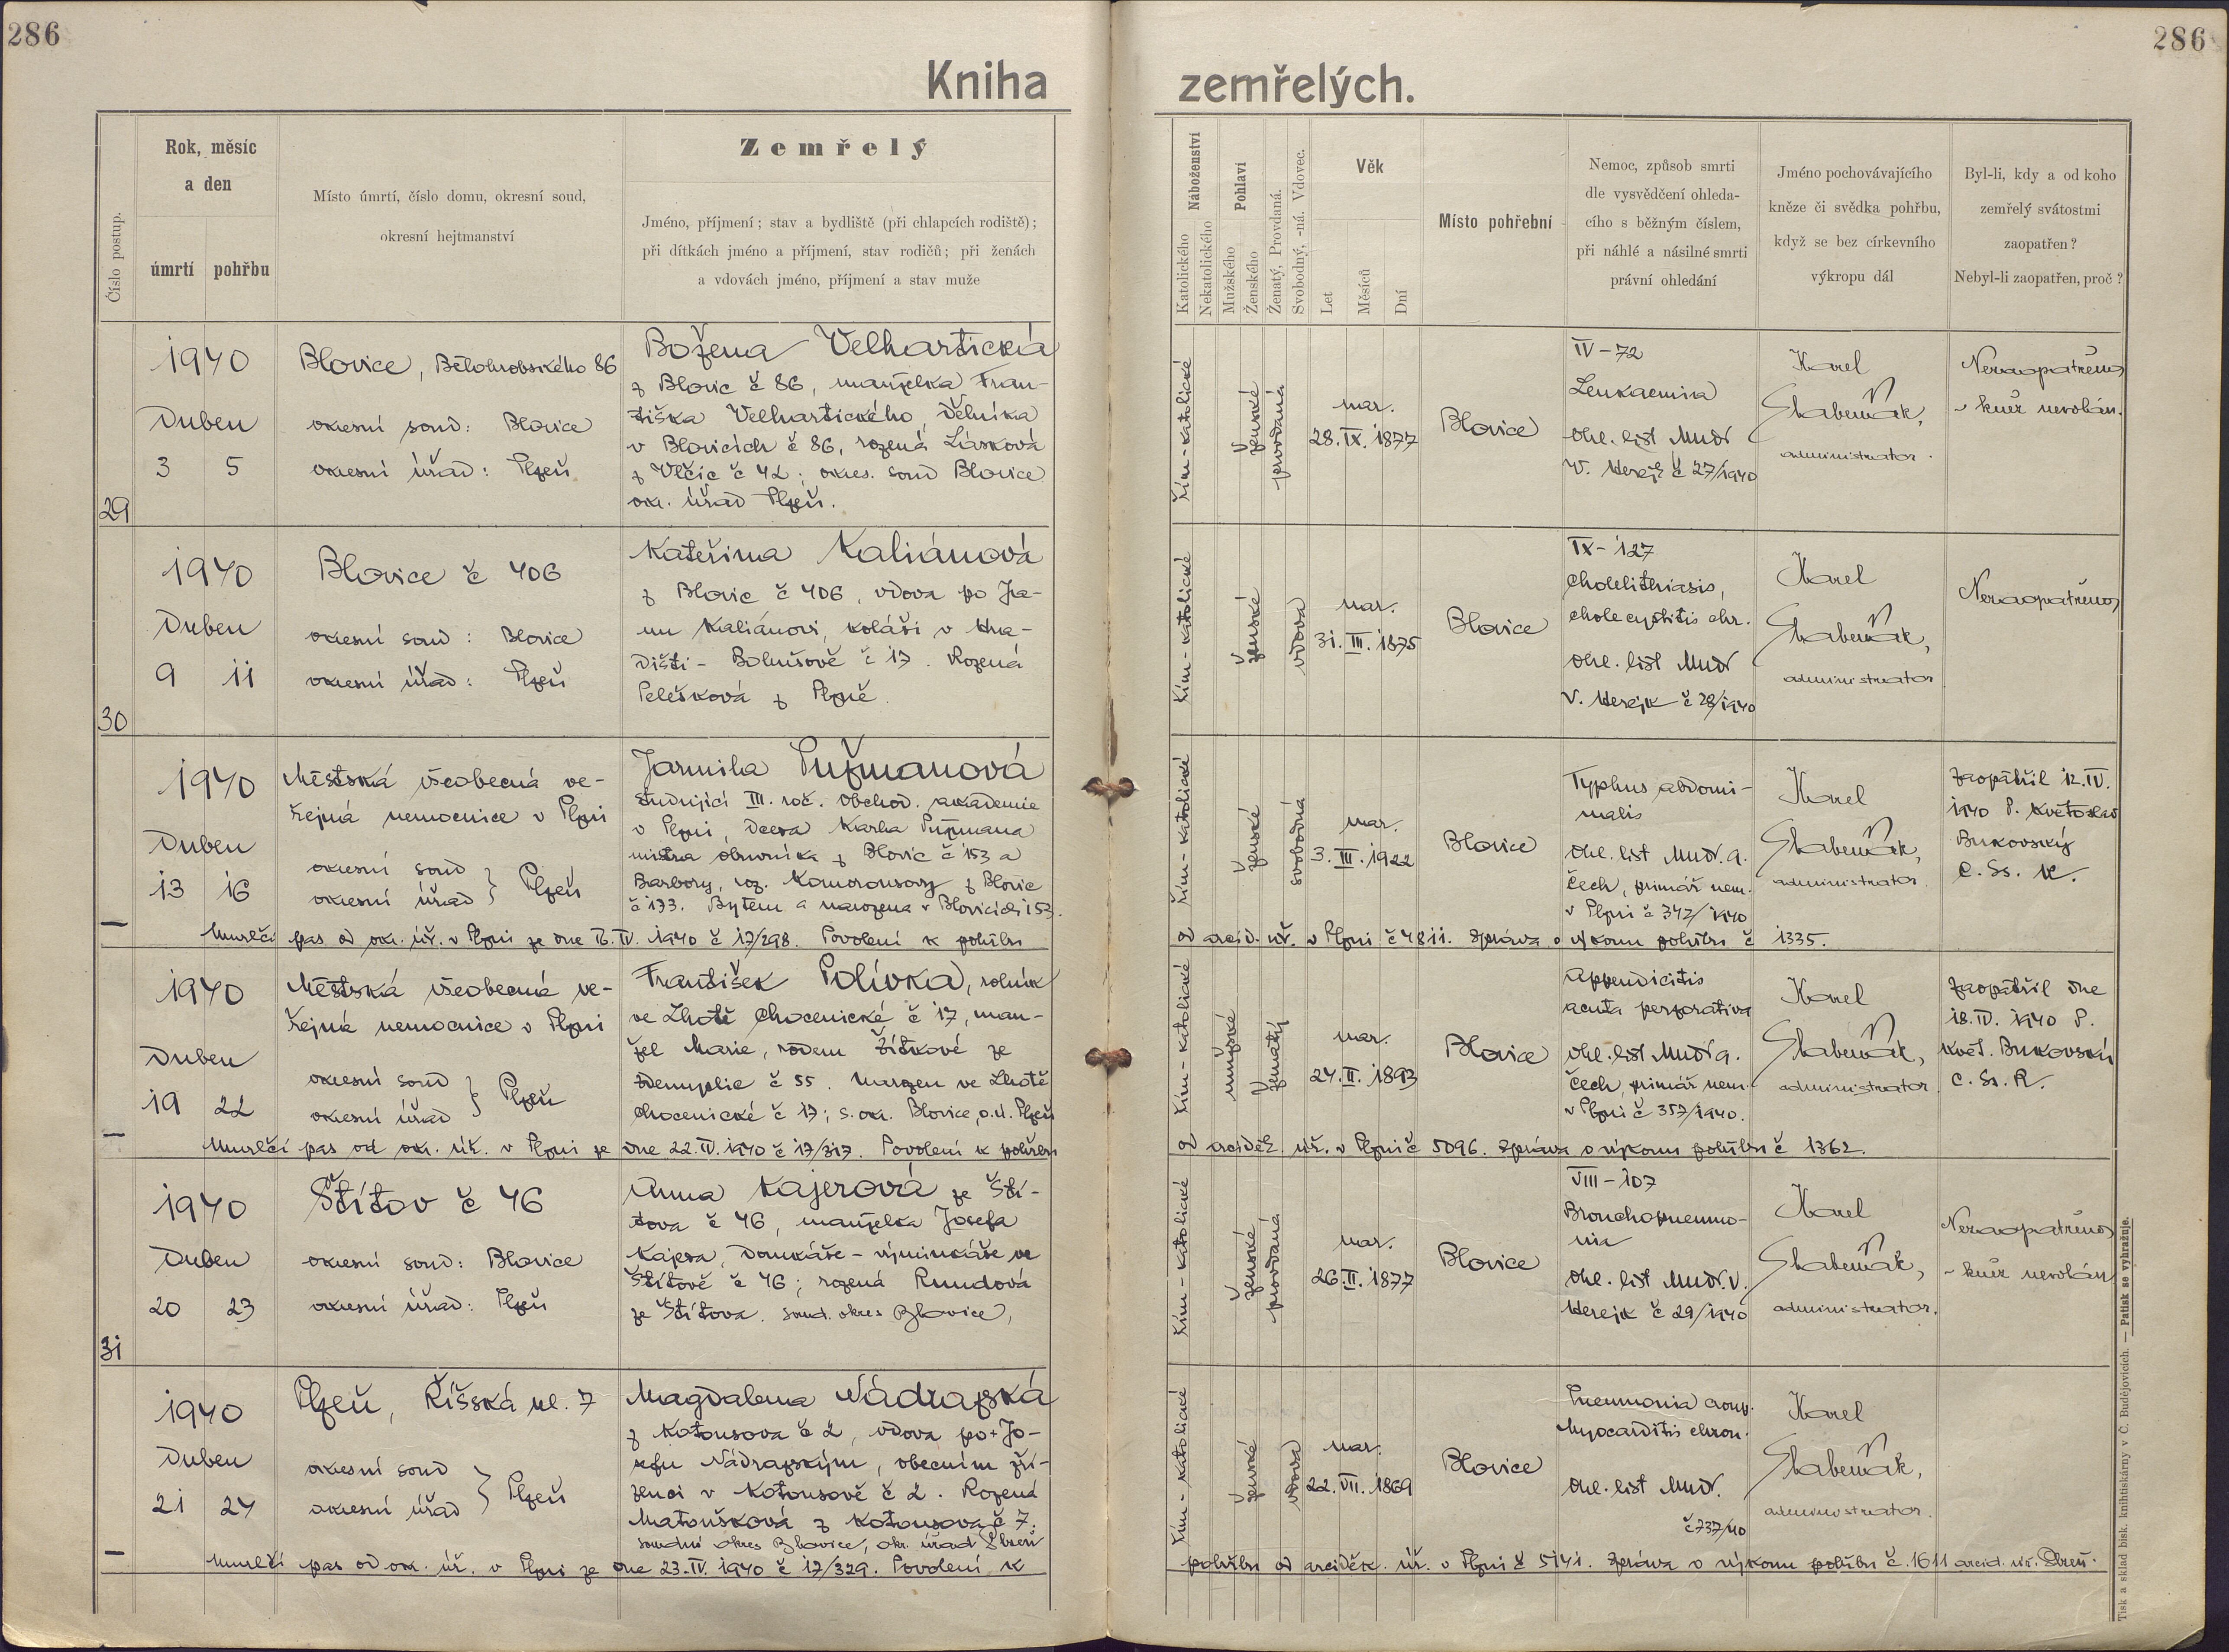 286
286
Kniha zemřelých.
Číslo postup.
Rok, měsíc
a den
úmrtí
pohřbu
Místo úmrtí, číslo domu, okresní soud,
okresní hejtmanství
Zemřelý
Jméno, příjmení; stav a bydliště (při chlapcích rodiště);
při dítkách jméno a příjmení, stav rodičů; při ženách
a vdovách jméno, příjmení a stav muže
Náboženství
Katolického
Nekatolického
Pohlaví
Mužského
Ženského
Ženatý, Provdaná.
Svobodný, -ná. Vdovec.
Věk
Let
Měsíců
Dní
Místo pohřební
Nemoc, způsob smrti
dle vysvědčení ohleda-
cího s běžným číslem,
při náhlé a násilné smrti
právní ohledání
Jméno pochovávajícího
kněze či svědka pohřbu,
když se bez církevního
výkropu dál
Byl-li, kdy a od koho
zemřelý svátostmi
zaopatřen?
Nebyl-li zaopatřen, proč?
29
1940
Duben
3 5
Blovice, Bělohrobského 86
okresní soud: Blovice
okresní úřad: Plzeň
Božena Velhartická
z Blovic č 86, manželka Fran-
tiška Velhartického, dělníka
v Blovicích č 86, rozená Lásková
z Vlčic č 42; okres. soud Blovice
okr. úřad Plzeň.
řím-katolické
ženské
provdaná
nar.
28. IX. 1877
Blovice
IV-72
Leukaemia
ohl. list Mudr
V. Herejk č 27/1940
Karel
administrator.
Nezaopatřena
- kněz nevolán.
30
1940
Duben
9 11
Blovice č 406
okresní soud: Blovice
okresní úřad: Plzeň
Kateřina Kaliánová
z Blovic č 406, vdova po Ja-
nu Kaliánovi, koláři v Hra-
dišti - Bohušově č 17. Rozená
Pelešková z Plzně.
řím-katolické
ženské
vdova
nar.
31. III. 1875
Blovice
IX-127
Cholelithiasis,
cholecystitis chr.
ohl. list Mudr
V. Herejk č 28/1940
Karel
administrator
Nezaopatřena
—
1940
Duben
13 16
Městská všeobecná ve-
řejná nemocnice v Plzni
okresní soud
okresní úřad } Plzeň
Jarmila Pužmanová
studující III. roč. obchod. akademie
v Plzni, dcera Karla Pužmana
mistra obuvníka z Blovic č 153 a
Barbory, roz. Komorousovy z Blovic
č 133. Bytem a narozena v Blovicích 153.
řím-katolické
ženské
svobodná
nar.
3. III. 1922
Blovice
Typhus abdomi-
nalis
ohl. list Mudr. A.
Čech, primář nem.
v Plzni č 342/1940
Karel
administrator.
Zaopatřil 12. IV.
1940 P. Květoslav
Bukovský
C. Ss. R.
Umrlčí pas od okr. úř. v Plzni ze dne 15. IV. 1940 č 17/298. Povolení k pohřbu
od arcid. úř. v Plzni č 4811. Zpráva o výkonu pohřbu č 1335.
—
1940
Duben
19 22
Městská všeobecná ve-
řejná nemocnice v Plzni
okresní soud
okresní úřad } Plzeň
František Polívka, rolník
ve Lhotě Chocenické č 17, man-
žel Marie, rodem Žítkové ze
Zdemyslic č 55. Narozen ve Lhotě
Chocenické č 17; s. okr. Blovice, o. ú. Plzeň
řím-katolické
mužské
ženatý
nar.
24. II. 1893
Blovice
Appendicitis
acuta perforativa
ohl. list Mudr A.
Čech, primář nem.
v Plzni č 357/1940.
Karel
administrator
Zaopatřil dne
18. IV. 1940 P.
Květ. Bukovský
C. Ss. R.
Umrlčí pas od okr. úř. v Plzni ze dne 22. IV. 1940 č 17/317. Povolení k pohřbu
od arciděk. úř. v Plzni č 5096. Zpráva o výkonu pohřbu č 1362.
31
1940
Duben
20 23
Štítov č 46
okresní soud: Blovice
okresní úřad: Plzeň
Anna Kajerová ze Ští-
tova č 46, manželka Josefa
Kajera, domkáře - výminkáře ve
Štítově č 46; rozená Rundová
ze Štítova. soud. okres Blovice,
řím-katolické
ženské
provdaná
nar.
26. II. 1877
Blovice
VIII-107
Bronchopneumo-
nia
ohl. list Mudr. V.
Herejk č 29/1940
Karel
administrator.
Nezaopatřena
- kněz nevolán
—
1940
Duben
21 24
Plzeň, Říšská ul. 7
okresní soud
okresní úřad } Plzeň
Magdalena Nádražská
z Kotousova č 2, vdova po + Jo-
sefu Nádražským, obecním zří-
zenci v Kotousově č 2. Rozená
Matoušková z Kotousova č 7.
soudní okres Blovice, okr. úřad Plzeň
řím-katolické
ženské
vdova
nar.
22. VII. 1869
Blovice
Pneumonia croup.
Myocarditis chron.
ohl. list Mudr.
č 737/40
Karel
administrator.
Umrlčí pas od okr. úř. v Plzni ze dne 23. IV. 1940 č 17/329. Povolení k
pohřbu od arciděk. úř. v Plzni č 5141. Zpráva o výkonu pohřbu č. 1611 arcid. úř. Plzeň.
Tisk a sklad bisk. knihtiskárny v Č. Budějovicích. — Patisk se vyhražuje.